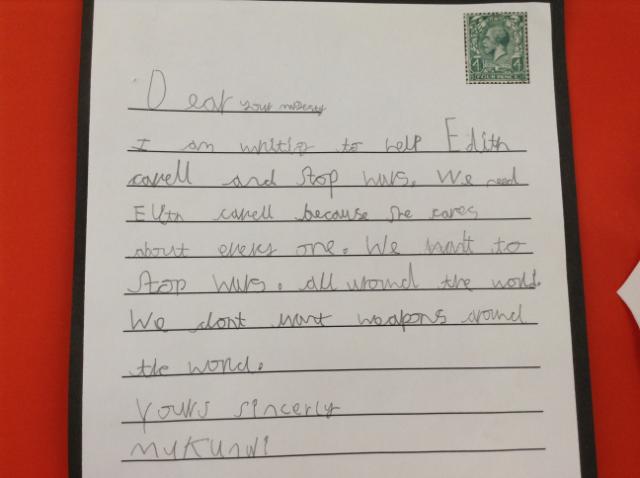 Dear your majesty
I am writing to help Edith
cavell and stop wars. We need
Edith cavell because she cares
about every one. We want to
stop wars. all around the world.
We dont want weapons around
the world.
Yours sincerly